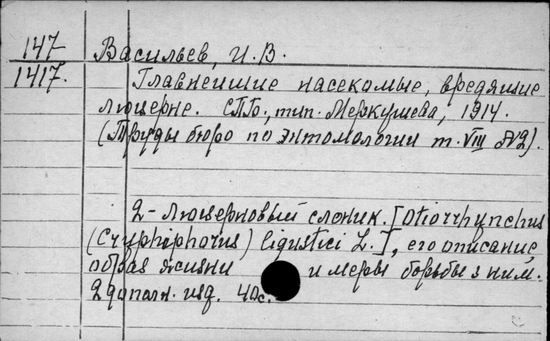 147 Васильев, И.В.
1417. Главнейшие насекомые, вредящие
люцерне. СПБ., тип. Меркушева, 1914.
(Труды бюро по энтомологии т. VIII №2).
2-люцерновый слоник. [Otiorrhynchus
(Cryphiphorus) ligustici L.], его описание,
образ жизни и меры борьбы с ним.
2 дополн. изд. 40с.